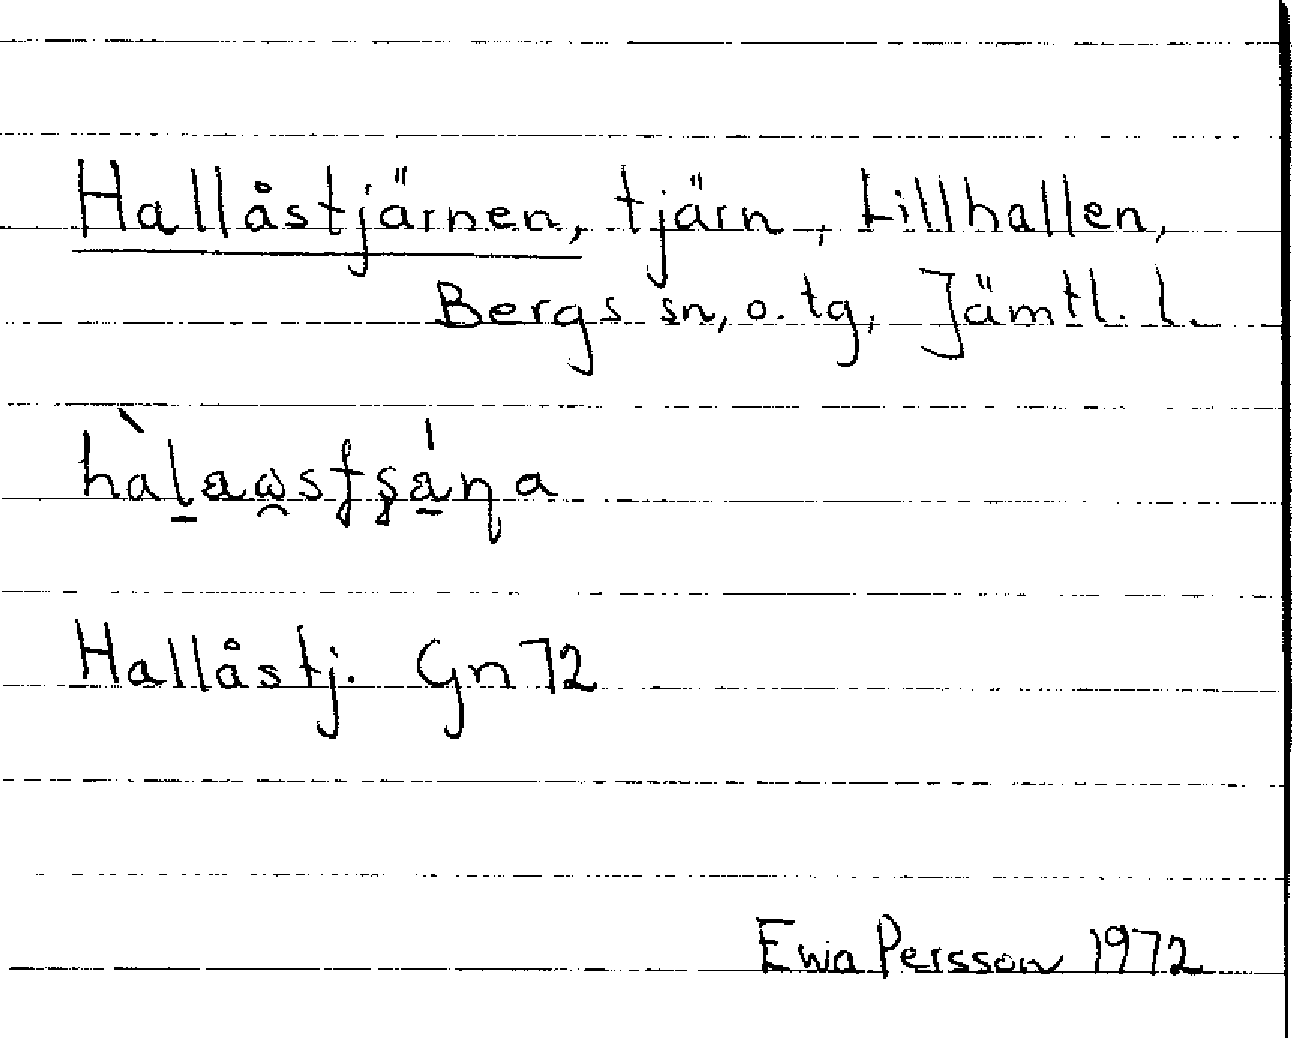 Hallåstjärnen, tjärn, Lillhallen,
Bergs sn, o. tg, Jämtl. l.
Hallåstj. Gn 72
Ewa Persson 1972